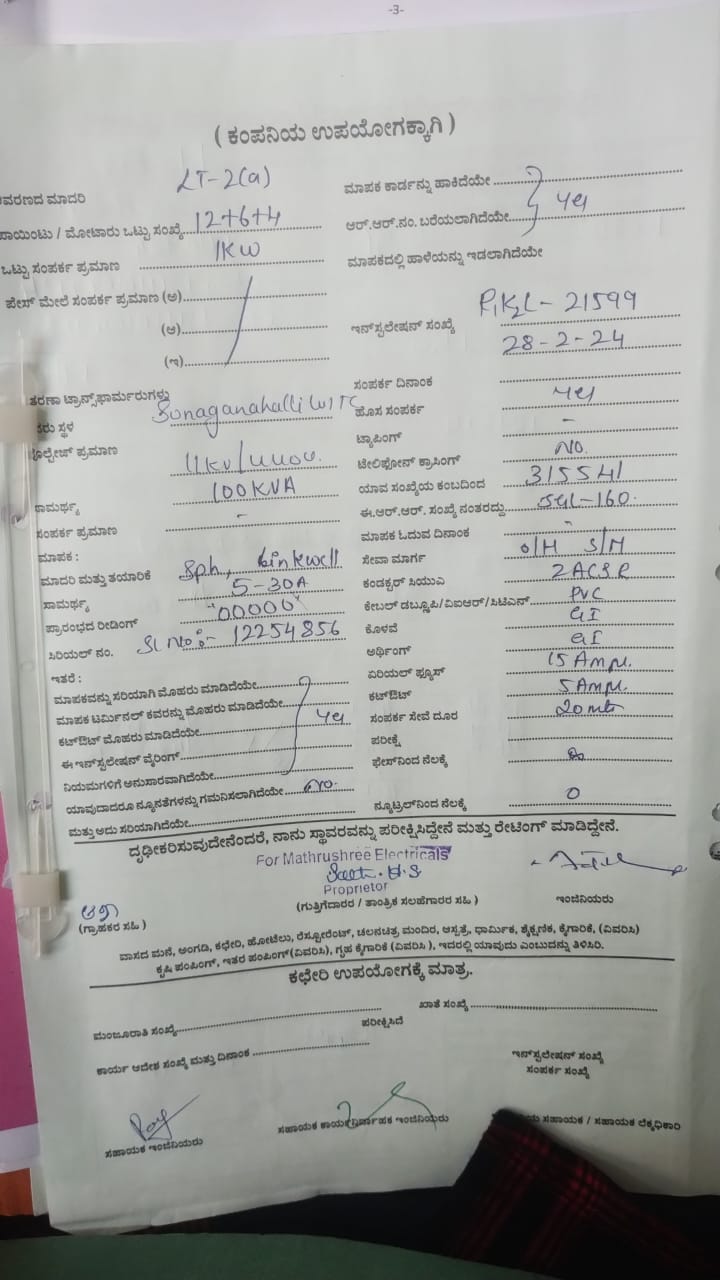 -3-
( ಕಂಪನಿಯ ಉಪಯೋಗಕ್ಕಾಗಿ )
ವರಣದ ಮಾದರಿ LT-2(a)
ಮಾಪಕ ಕಾರ್ಡನ್ನು ಹಾಕಿದೆಯೇ
ಪಾಯಿಂಟು / ಮೋಟಾರು ಒಟ್ಟು ಸಂಖ್ಯೆ 12+6+4
ಆರ್.ಆರ್.ನಂ. ಬರೆಯಲಾಗಿದೆಯೇ yes
ಒಟ್ಟು ಸಂಪರ್ಕ ಪ್ರಮಾಣ 1KW
ಮಾಪಕದಲ್ಲಿ ಹಾಳೆಯನ್ನು ಇಡಲಾಗಿದೆಯೇ
ಪೇಸ್ ಮೇಲೆ ಸಂಪರ್ಕ ಪ್ರಮಾಣ (ಅ)
(ಆ)
(ಇ)
ಇನ್‌ಸ್ಟಲೇಷನ್ ಸಂಖ್ಯೆ 21599
28-2-24
ತರಣಾ ಟ್ರಾನ್ಸ್‌ಫಾರ್ಮರುಗಳು
ಸಂಪರ್ಕ ದಿನಾಂಕ
ರು ಸ್ಥಳ Sunaganahalli
ಹೊಸ ಸಂಪರ್ಕ yes
ಟ್ಯಾಪಿಂಗ್ -
ವೋಲ್ಟೇಜ್ ಪ್ರಮಾಣ 11kv/440v.
ಟೆಲಿಫೋನ್ ಕ್ರಾಸಿಂಗ್ NO.
ಸಾಮರ್ಥ್ಯ 100KVA
ಯಾವ ಸಂಖ್ಯೆಯ ಕಂಬದಿಂದ 315541
ಸಂಪರ್ಕ ಪ್ರಮಾಣ -
ಈ.ಆರ್.ಆರ್. ಸಂಖ್ಯೆ ನಂತರದ್ದು -160.
ಮಾಪಕ :
ಮಾಪಕ ಓದುವ ದಿನಾಂಕ -
ಮಾದರಿ ಮತ್ತು ತಯಾರಿಕೆ Sph, Linkwell
ಸೇವಾ ಮಾರ್ಗ O/H S/M
ಸಾಮರ್ಥ್ಯ 5-30A
ಕಂಡಕ್ಟರ್ ಸಿಯುಎ 2 ACSR
ಪ್ರಾರಂಭದ ರೀಡಿಂಗ್ "00000"
ಕೇಬಲ್ ಡಬ್ಲೂಪಿ/ವಿಐಆರ್/ಸಿಟಿಎಸ್ PVC
ಸಿರಿಯಲ್ ನಂ. Sl No:- 12254856
ಕೊಳವೆ GI
ಅರ್ಥಿಂಗ್ GI
ಇತರೆ :
ಏರಿಯಲ್ ಫ್ಯೂಸ್ 15 Amp.
ಮಾಪಕವನ್ನು ಸರಿಯಾಗಿ ಮೊಹರು ಮಾಡಿದೆಯೇ
ಕಟ್‌ಔಟ್ 5 Amp.
ಮಾಪಕ ಟರ್ಮಿನಲ್ ಕವರನ್ನು ಮೊಹರು ಮಾಡಿದೆಯೇ
ಸಂಪರ್ಕ ಸೇವೆ ದೂರ 20 mts
ಕಟ್‌ಔಟ್ ಮೊಹರು ಮಾಡಿದೆಯೇ yes
ಪರೀಕ್ಷೆ
ಈ ಇನ್‌ಸ್ಟಲೇಷನ್ ವೈರಿಂಗ್
ಫೇಸ್‌ನಿಂದ ನೆಲಕ್ಕೆ
ನಿಯಮಗಳಿಗೆ ಅನುಸಾರವಾಗಿದೆಯೇ
ಯಾವುದಾದರೂ ನ್ಯೂನತೆಗಳನ್ನು ಗಮನಿಸಲಾಗಿದೆಯೇ No.
ಮತ್ತು ಅದು ಸರಿಯಾಗಿದೆಯೇ
ನ್ಯೂಟ್ರಲ್‌ನಿಂದ ನೆಲಕ್ಕೆ 0
ದೃಢೀಕರಿಸುವುದೇನೆಂದರೆ, ನಾನು ಸ್ಥಾವರವನ್ನು ಪರೀಕ್ಷಿಸಿದ್ದೇನೆ ಮತ್ತು ರೇಟಿಂಗ್ ಮಾಡಿದ್ದೇನೆ.
For Mathrushree Electricals
Proprietor
(ಗ್ರಾಹಕರ ಸಹಿ )
(ಗುತ್ತಿಗೆದಾರರ / ತಾಂತ್ರಿಕ ಸಲಹೆಗಾರರ ಸಹಿ )
ಇಂಜಿನಿಯರು
ವಾಸದ ಮನೆ, ಅಂಗಡಿ, ಕಛೇರಿ, ಹೋಟೆಲು, ರೆಸ್ಟೋರೆಂಟ್, ಚಲನಚಿತ್ರ ಮಂದಿರ, ಆಸ್ಪತ್ರೆ, ಧಾರ್ಮಿಕ, ಶೈಕ್ಷಣಿಕ, ಕೈಗಾರಿಕೆ, (ವಿವರಿಸಿ)
ಕೃಷಿ ಪಂಪಿಂಗ್, ಇತರ ಪಂಪಿಂಗ್(ವಿವರಿಸಿ), ಗೃಹ ಕೈಗಾರಿಕೆ (ವಿವರಿಸಿ ), ಇದರಲ್ಲಿ ಯಾವುದು ಎಂಬುದನ್ನು ತಿಳಿಸಿರಿ.
ಕಛೇರಿ ಉಪಯೋಗಕ್ಕೆ ಮಾತ್ರ.
ಮಂಜೂರಾತಿ ಸಂಖ್ಯೆ
ಖಾತೆ ಸಂಖ್ಯೆ
ಪರೀಕ್ಷಿಸಿದೆ
ಕಾರ್ಯ ಆದೇಶ ಸಂಖ್ಯೆ ಮತ್ತು ದಿನಾಂಕ
ಇನ್‌ಸ್ಟಲೇಷನ್ ಸಂಖ್ಯೆ
ಸಂಪರ್ಕ ಸಂಖ್ಯೆ
ಸಹಾಯಕ ಇಂಜಿನಿಯರು
ಸಹಾಯಕ ಕಾರ್ಯನಿರ್ವಾಹಕ ಇಂಜಿನಿಯರು
ಸಹಾಯಕ / ಸಹಾಯಕ ಲೆಕ್ಕಧಿಕಾರಿ